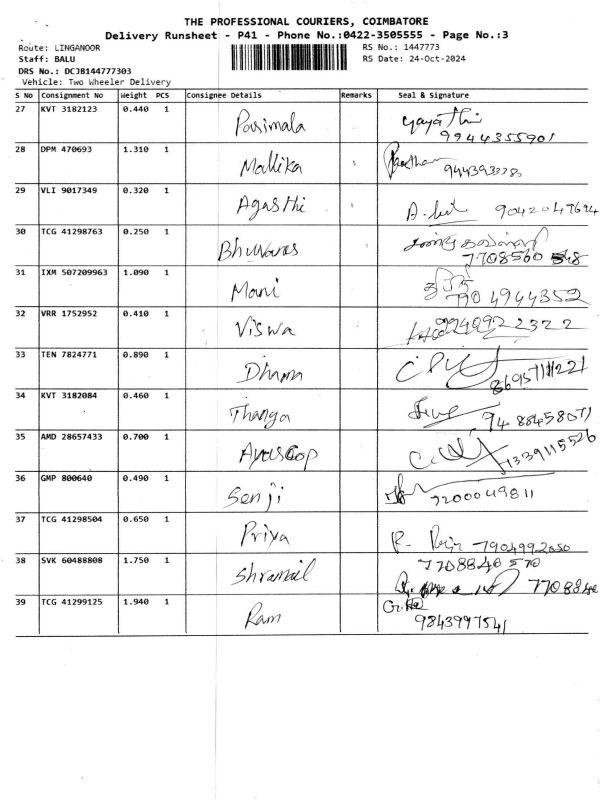 THE PROFESSIONAL COURIERS, COIMBATORE
Delivery Runsheet - P41 - Phone No.:0422-3505555 - Page No.:3
Route: LINGANOOR RS No.: 1447773
Staff: BALU RS Date: 24-Oct-2024
DRS No.: DCJB144777303
Vehicle: Two Wheeler Delivery
S No Consignment No Weight PCS Consignee Details Remarks Seal & Signature
27 KVT 3182123 0.440 1 Parimala
9944355901
28 DPM 470693 1.310 1 Mallika
29 VLI 9017349 0.320 1 Agasthi
30 TCG 41298763 0.250 1 Bhuvanes
7708560
31 IXM 507209963 1.090 1 Mani
7904944352
32 VRR 1752952 0.410 1 Viswa 9940922322
33 TEN 7824771 0.890 1 Dhama
34 KVT 3182084 0.460 1 Thanga
35 AMD 28657433 0.700 1
36 GMP 800640 0.490 1 Senji 7200049811
37 TCG 41298504 0.650 1 Priya 7904992050
38 SVK 60488808 1.750 1 7708840570
770884
39 TCG 41299125 1.940 1 Ram
9843997541